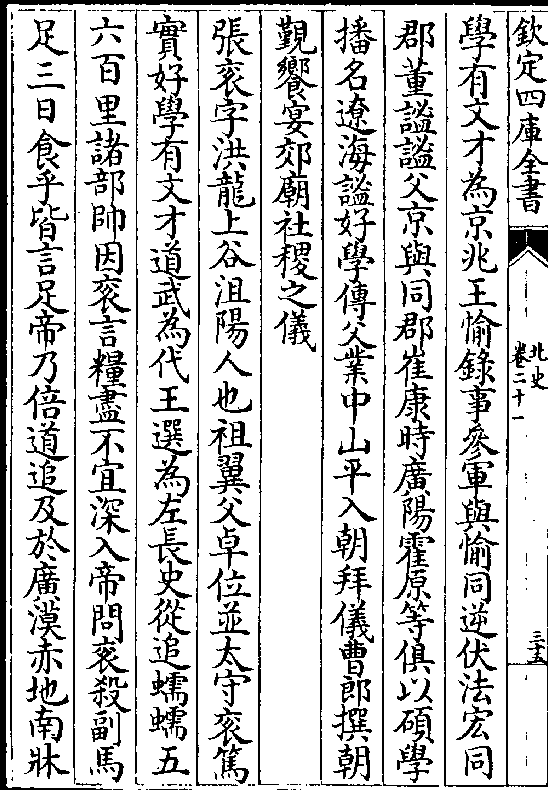 欽定四庫全書
北史
卷二十一
三十五
學有文才為京兆王愉錄事參軍與愉同逆伏法宏同
郡董謐謐父京與同郡崔康時廣陽霍原等俱以碩學
播名遼海謐好學傳父業中山平入朝拜儀曹郎撰朝
覲饗宴郊廟社稷之儀
張衮字洪龍上谷沮陽人也祖翼父卓位並太守衮篤
實好學有文才道武為代王選為左長史從追蠕蠕五
六百里諸部帥因衮言糧盡不宜深入帝問衮殺副馬
足三日食乎皆言足帝乃倍道追及於廣漠赤地南牀